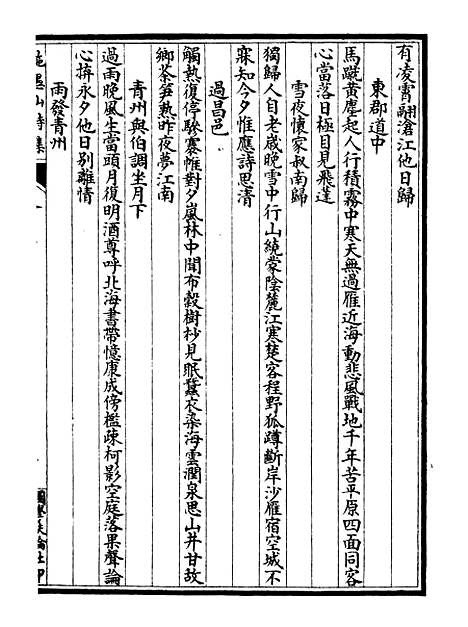 有凌霄翮滄江他日歸
東郡道中
馬蹴黃塵起人行積霧中寒天無過雁近海動悲風戰地千年苦平原四面同客
心當落日極目見飛蓬
雪夜懷家叔南歸
獨歸人自老歲晚雪中行山繞蒙陰麓江寒楚客程野狐蹲斷岸沙雁宿空城不
寐知今夕惟應詩思清
過昌邑
觸熱復停驂褰帷對夕嵐林中聞布穀樹杪見眠蠶衣染海雲潤泉思山井甘故
鄉茶筍熟昨夜夢江南
青州與伯調坐月下
過雨晚風生當頭月復明酒尊呼北海書帶憶康成傍檻疎柯影空庭落果聲論
心拚永夕他日別離情
雨發青州
愚山詩集